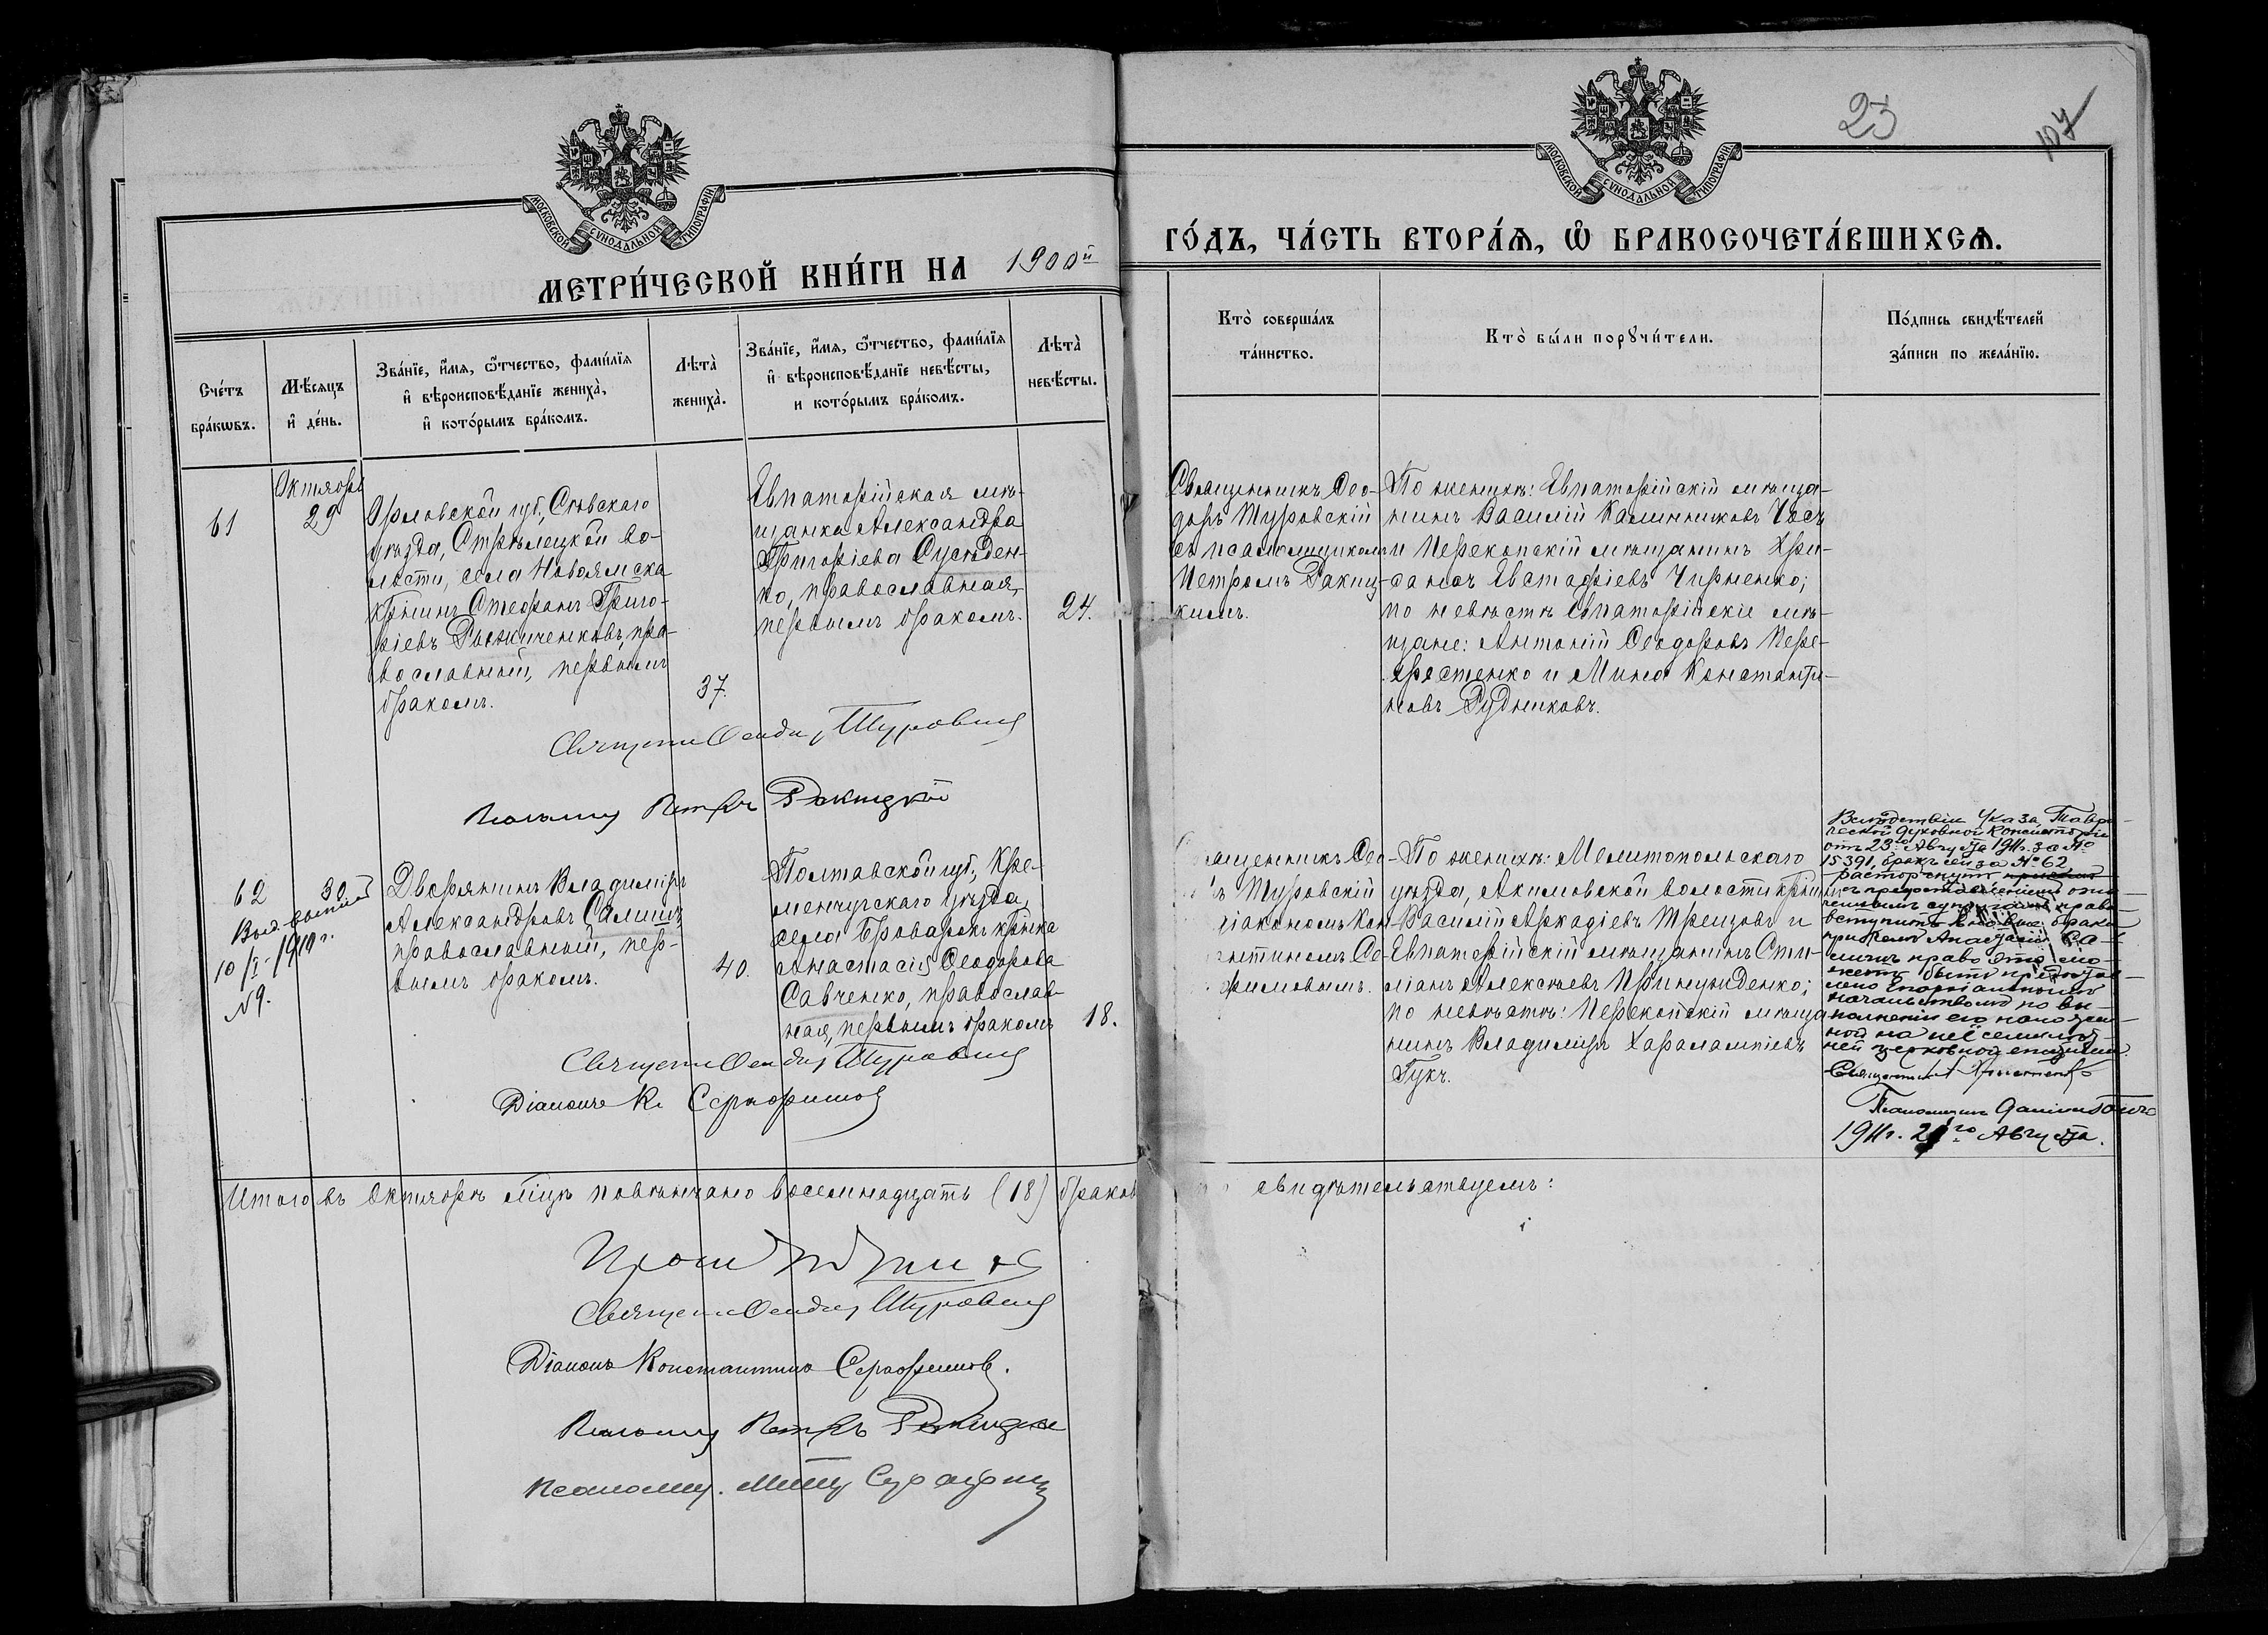 23
107
МОСКОВСКОЙ СѴНОДАЛЬНОЙ ТИПОГРАФІИ
МОСКОВСКОЙ СѴНОДАЛЬНОЙ ТИПОГРАФІИ
МЕТРИ́ЧЕСКОЙ КНИ́ГИ НА 1900й
ГО́ДЪ, ЧА́СТЬ ВТОРА́Ѧ, Ѽ БРАКОСОЧЕТА́ВШИХСѦ.
Сче́тъ
бра́кѡвъ.
Мѣ́сяцъ
и҆ де́нь.
Зва́нїе, и҆́мя, ѻ҆́тчество, фами́лїя
и҆ вѣроисповѣ́данїе жениха̀,
и҆ кото́рымъ бра́комъ.
Лѣта̀
жениха̀.
Зва́нїе, и҆́мя, ѻ҆́тчество, фами́лїя
и҆ вѣроисповѣ́данїе невѣ́сты,
и кото́рымъ бра́комъ.
Лѣта̀
невѣ́сты.
Кто̀ соверша́лъ
та́инство.
Кто̀ бы́ли порꙋчи́тели.
По́дпись свидѣ́телей
за́писи по жела́нїю.
61
Октябрь
29
Орловской губ., Сѣвскаго
уѣзда, Стрѣлецкой во-
лости, села Новоямска
кр-нинъ Стефанъ Григо-
ріевъ Рыжиченковъ, пра-
вославный, первымъ
бракомъ.
37.
Евпаторійская мѣ-
щанка Александра
Григоріева Сусѣден-
ко, православная,
первымъ бракомъ.
24.
Священникъ Ѳео-
доръ Туровскій
съ псаломщикомъ
Петромъ Ракиц-
кимъ.
По женихѣ: Евпаторійскій мѣща-
нинъ Василій Калинниковъ
и Перекопскій мѣщанинъ Хри-
санѳъ Евстафіевъ Чирненко;
по невѣстѣ евпаторійскіе мѣ-
щане: Антоній Ѳеодоровъ Пере-
хрестенко и Мина Константи-
новъ Рудниковъ.
Священ Ѳеодоръ Туровскій
Псаломщ Петръ Ракицкій
62
30
Выд. выпись
10/I-1910 г.
№9.
Дворянинъ Владиміръ
Александровъ Салишъ,
православный, пер-
вымъ бракомъ.
40.
Полтавской губ., Кре-
менчугскаго уѣзда,
села Броварокъ кр-нка
Анастасія Ѳеодорова
Савченко, православ-
ная, первымъ бракомъ
18.
ященникъ Ѳео-
ъ Туровскій
діакономъ Кон-
нтиномъ Се-
фимовымъ.
По женихѣ: Мелитопольскаго
уѣзда, Акимовской волости кр-нинъ
Василій Аркадіевъ Трещовъ и
Евпаторійскій мѣщанинъ Сти-
ліанъ Алексѣевъ
по невѣстѣ: Перекопскій мѣща
нинъ Владиміръ Харалампіевъ
Гукъ.
Вслѣдствіи Указа Таври-
ческой Духовной Консисторіи
отъ 23го Августа 1911г. за №
15391, бракъ сей за № 62
расторгнутъ
съ предоставленіемъ
супругамъ права
вступить въ новые браки
причемъ Анастасіи Са-
лишъ право это мо-
жетъ быть предостав-
лено Епархіальнымъ
начальствомъ по вы-
полненіи ею наложен-
ной на неё семилѣт-
ней церковной епитиміи.
Священникъ
Псаломщикъ
1911г. 29го Августа.
Священ Ѳеодоръ Туровскій
Діаконъ К. Серафимовъ
Итого въ Октябрѣ м-цѣ повѣнчано восемнадцать (18) браковъ
свидѣтельствуемъ:
Священ Ѳеодоръ Туровскій
Діаконъ Константинъ Серафимовъ.
Псаломщ Петръ Ракицкій
Псаломщ.